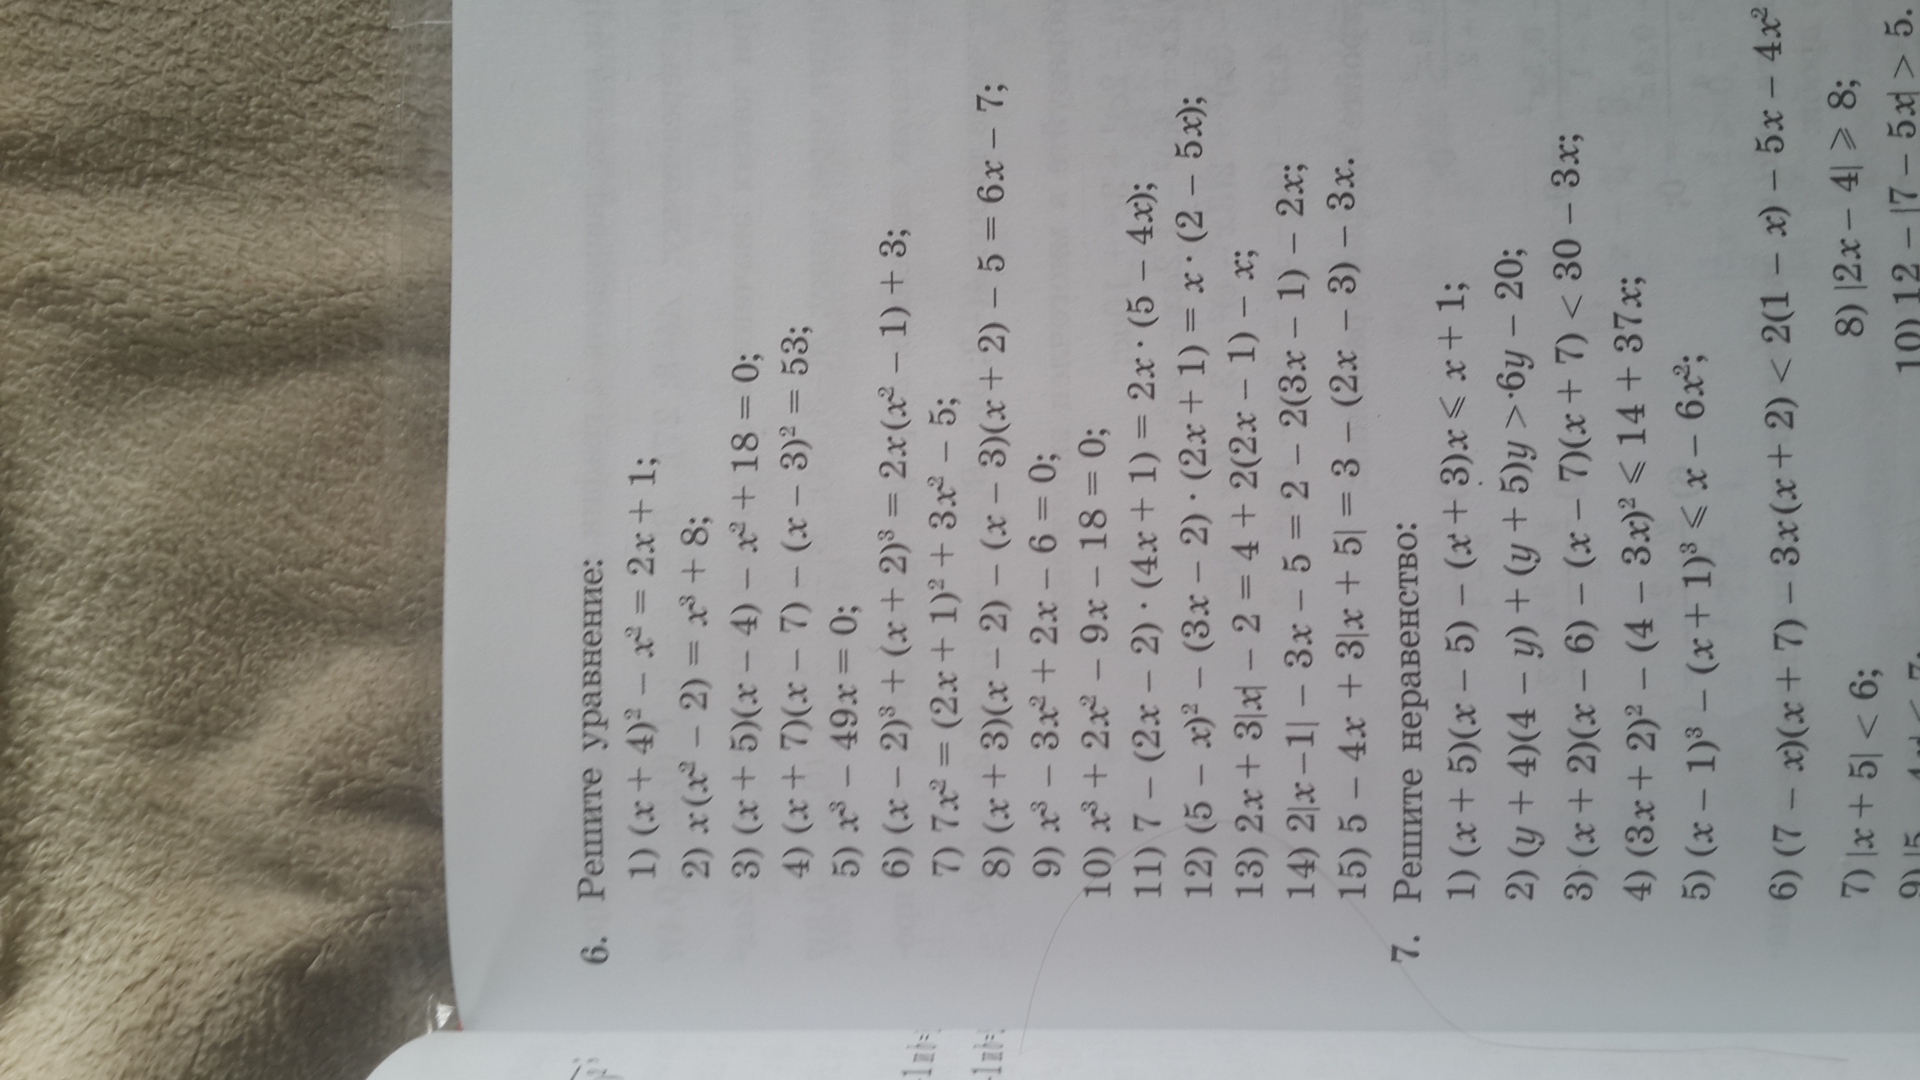 6. Решите уравнение:
1) (x + 4)² − x² = 2x + 1;
2) x(x² − 2) = x³ + 8;
3) (x + 5)(x − 4) − x² + 18 = 0;
4) (x + 7)(x − 7) − (x − 3)² = 53;
5) x³ − 49x = 0;
6) (x − 2)³ + (x + 2)³ = 2x(x² − 1) + 3;
7) 7x² = (2x + 1)² + 3x² − 5;
8) (x + 3)(x − 2) − (x − 3)(x + 2) − 5 = 6x − 7;
9) x³ − 3x² + 2x − 6 = 0;
10) x³ + 2x² − 9x − 18 = 0;
11) 7 − (2x − 2) · (4x + 1) = 2x · (5 − 4x);
12) (5 − x)² − (3x − 2) · (2x + 1) = x · (2 − 5x);
13) 2x + 3|x| − 2 = 4 + 2(2x − 1) − x;
14) 2|x − 1| − 3x − 5 = 2 − 2(3x − 1) − 2x;
15) 5 − 4x + 3|x + 5| = 3 − (2x − 3) − 3x.
7. Решите неравенство:
1) (x + 5)(x − 5) − (x + 3)x ⩽ x + 1;
2) (y + 4)(4 − y) + (y + 5)y > 6y − 20;
3) (x + 2)(x − 6) − (x − 7)(x + 7) < 30 − 3x;
4) (3x + 2)² − (4 − 3x)² ⩽ 14 + 37x;
5) (x − 1)³ − (x + 1)³ ⩽ x − 6x²;
6) (7 − x)(x + 7) − 3x(x + 2) < 2(1 − x) − 5x − 4x²
7) |x + 5| < 6; 8) |2x − 4| ⩾ 8;
10) 12 − |7 − 5x| > 5.